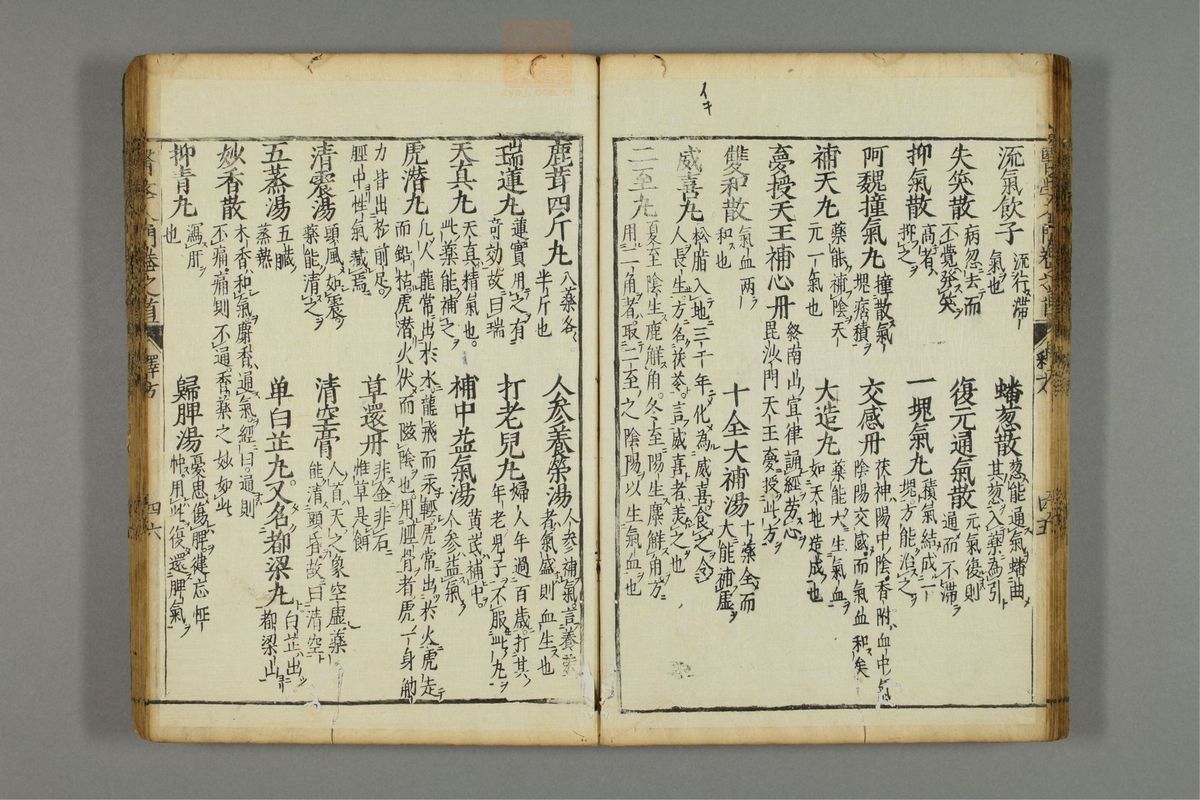 流氣飲子 流行滯氣也
蟠葱散 葱能通氣蟠曲其葱入藥為引
失笑散 病忽去而不覺發笑
復元通氣散 元氣復則通而不滯
抑氣散 高者抑之
一塊氣丸 積氣結成一塊方能治之
阿魏撞氣丸 撞散氣塊病積
交感丹 茯神陽中陰香附血中氣陰陽交感而氣血和矣
補天丸 藥能補陰天元一氣也
大造丸 藥能大生氣血如天地造成也
夢授天王補心丹 終南山宣律誦經勞心毘沙門天王夢授此方
雙和散 氣血兩和也
十全大補湯 十藥全而大能補虛
威喜丸 松脂入地三千年化為威喜食之令人長生方名茯苓言威喜者美之也
二至丸 夏至陰生鹿解角冬至陽生麋解角方用二角者取二至之陰陽以生氣血也
醫學入門卷之首 釋方 四五
鹿茸四斤丸 八藥各半斤也
人參養榮湯 人參補氣言養榮者氣盛則血生也
瑞蓮丸 蓮實用之有奇効故曰瑞
打老兒丸 婦人年過百歲打其年老兒子不服此丸
天真丸 天真精氣也此藥能補之
補中益氣湯 黃芪補中人參益氣
虎潜丸 凡人龍常出於水龍飛而汞輕虎常出於火虎走而鉛枯虎潜火伏而滋陰也用脛骨者虎一身觔力皆出於前足脛中性氣藏焉
草還丹 非金非石惟草是餌
清震湯 頭風如震藥能清之
清空膏 人首天之象空虛藥能清頭目故曰清空
五蒸湯 五臟蒸熱
单白芷丸又名都梁丸 白芷出都梁山
妙香散 木香和氣麝香通氣經曰通則不痛痛則不通香藥之妙如此
抑青丸 瀉肝也
歸脾湯 憂思傷脾健忘怔忡用此復還脾氣
醫學入門卷之首 釋方 四六